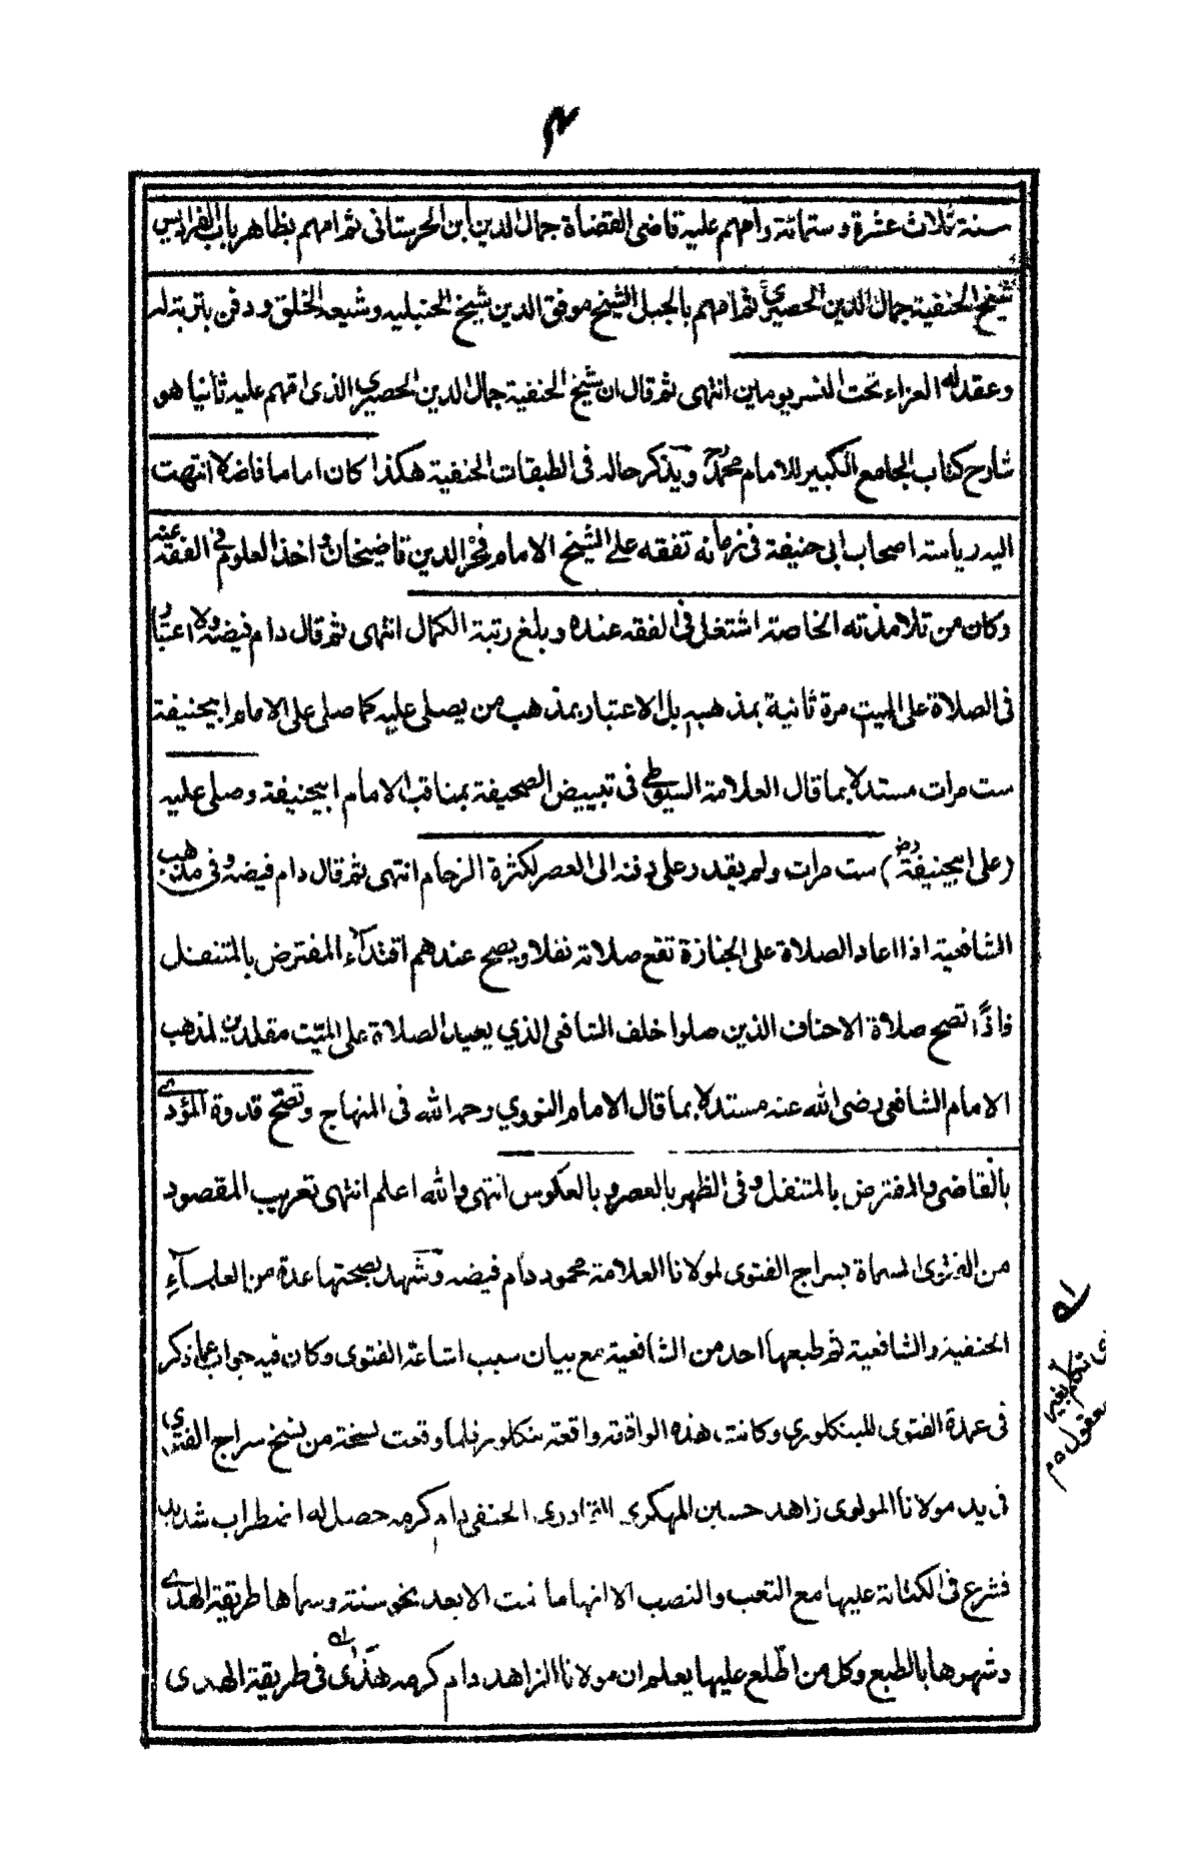 ٣
سنة ثلاث عشرة وستمائة وامهم عليه قاضى القضاة جمال الدين ابن الحرستانى ثم امهم بظاهر باب الفراديس
شيخ الحنفية جمال الدين الحصيرى ثم امهم بالجبل الشيخ موفق الدين شيخ الحنبليه وشيعه الخلق ودفن بتربة له
وعقد له العزاء تحت النسر يومين انتهى ثم قال ان شيخ الحنفية جمال الدين الحصيرى الذى امهم عليه ثانيا هو
شارح كتاب الجامع الكبير للامام محمد ويذكر حاله فى الطبقات الحنفية هكذا كان اماما فاضلا انتهت
اليه رياسة اصحاب ابى حنيفة فى زمانه تفقه على الشيخ الامام فخر الدين قاضيخان واخذ العلوم فى الفقه عنه
وكان من تلامذته الخاصة اشتغل فى الفقه عنده وبلغ رتبة الكمال انتهى ثم قال دام فيضه ولا اعتبار
فى الصلاة على الميت مرة ثانية بمذهبه بل الاعتبار بمذهب من يصلى عليه كما صلى على الامام ابيحنيفة
ست مرات مستدلا بما قال العلامة السيوطى فى تبييض الصحيفة بمناقب الامام ابيحنيفة وصلى عليه
(على ابيحنيفة رض) ست مرات ولم يقدر على دفنه الى العصر لكثرة الزحام انتهى ثم قال دام فيضه وفى مذهب
الشافعية اذا اعاد الصلاة على الجنازة تقع صلاته نفلا ويصح عندهم اقتداء المفترض بالمتنفل
فاذًا تصح صلاة الاحناف الذين صلوا خلف الشافعى الذي يعيد الصلاة على الميّت مقلدين لمذهب
الامام الشافعى رضى الله عنه مستدلا بما قال الامام النووي رحمه الله فى المنهاج وتصحّ قدوة المؤدى
بالقاضى والمفترض بالمتنفل وفى الظهر بالعصر وبالعكوس انتهى والله اعلم انتهى تعريب المقصود
من الفتوى المسماة بسراج الفتوى لمولانا العلامة محمود دام فيضه وشهد بصحتها عدة من العلماء
الحنفية والشافعية ثم طبعها احد من الشافعية مع بيان سبب اشاعة الفتوى وكان فيه جواب عما ذكر
فى عمدة الفتوى للبنكلورى وكانت هذه الواقعة واقعة بنكلور فلما وقعت نسخة من نسخ سراج الفتوى
فى يد مولانا المولوى زاهد حسين المهكرى الحنفى دام كرمه حصل له اضطراب شديد
فشرع فى الكتابة عليها مع التعب والنصب الا انها ما تمت الا بعد نحو سنة وسماها طريقة الهدى
وشهرها بالطبع وكل من اطّلع عليها يعلم ان مولانا الزاهد دام كرمه هذى فى طريقة الهدى
اى تكلم بغير
معقول ٥م